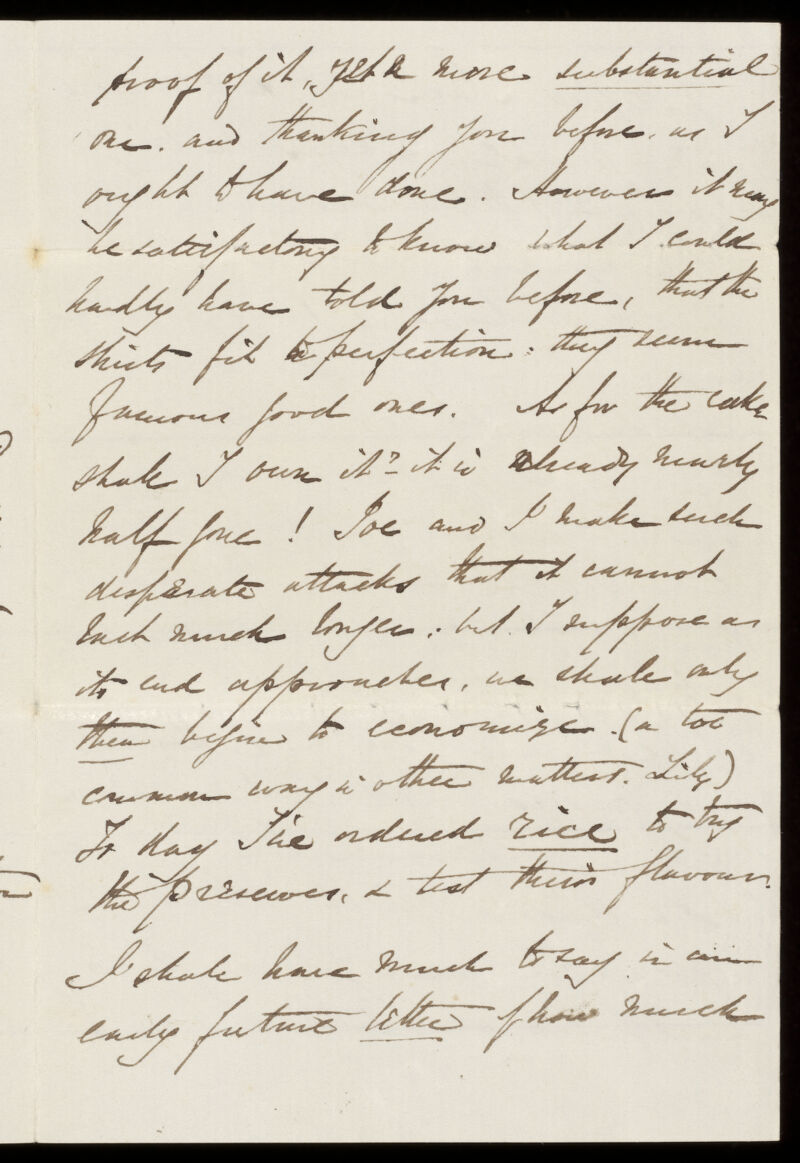 proof of it, yet a more substantial
one. and thanking you before. as I
ought to have done. However it may
be satisfactory to know what I could
hardly have told you before, that the
shirts fit to perfection: they seem
famous good ones. As for the cake
shall I own it? - it is already nearly
half gone! Joe and I make such
desperate attacks that it cannot
last much longer: but I suppose as
its end approaches, we shall only
then begin to economize. (a too
common way in other matters. Lily)
To day I've ordered rice to try
the preserves, & test their flavour.
I shall have much to say in an
early future letter of how much